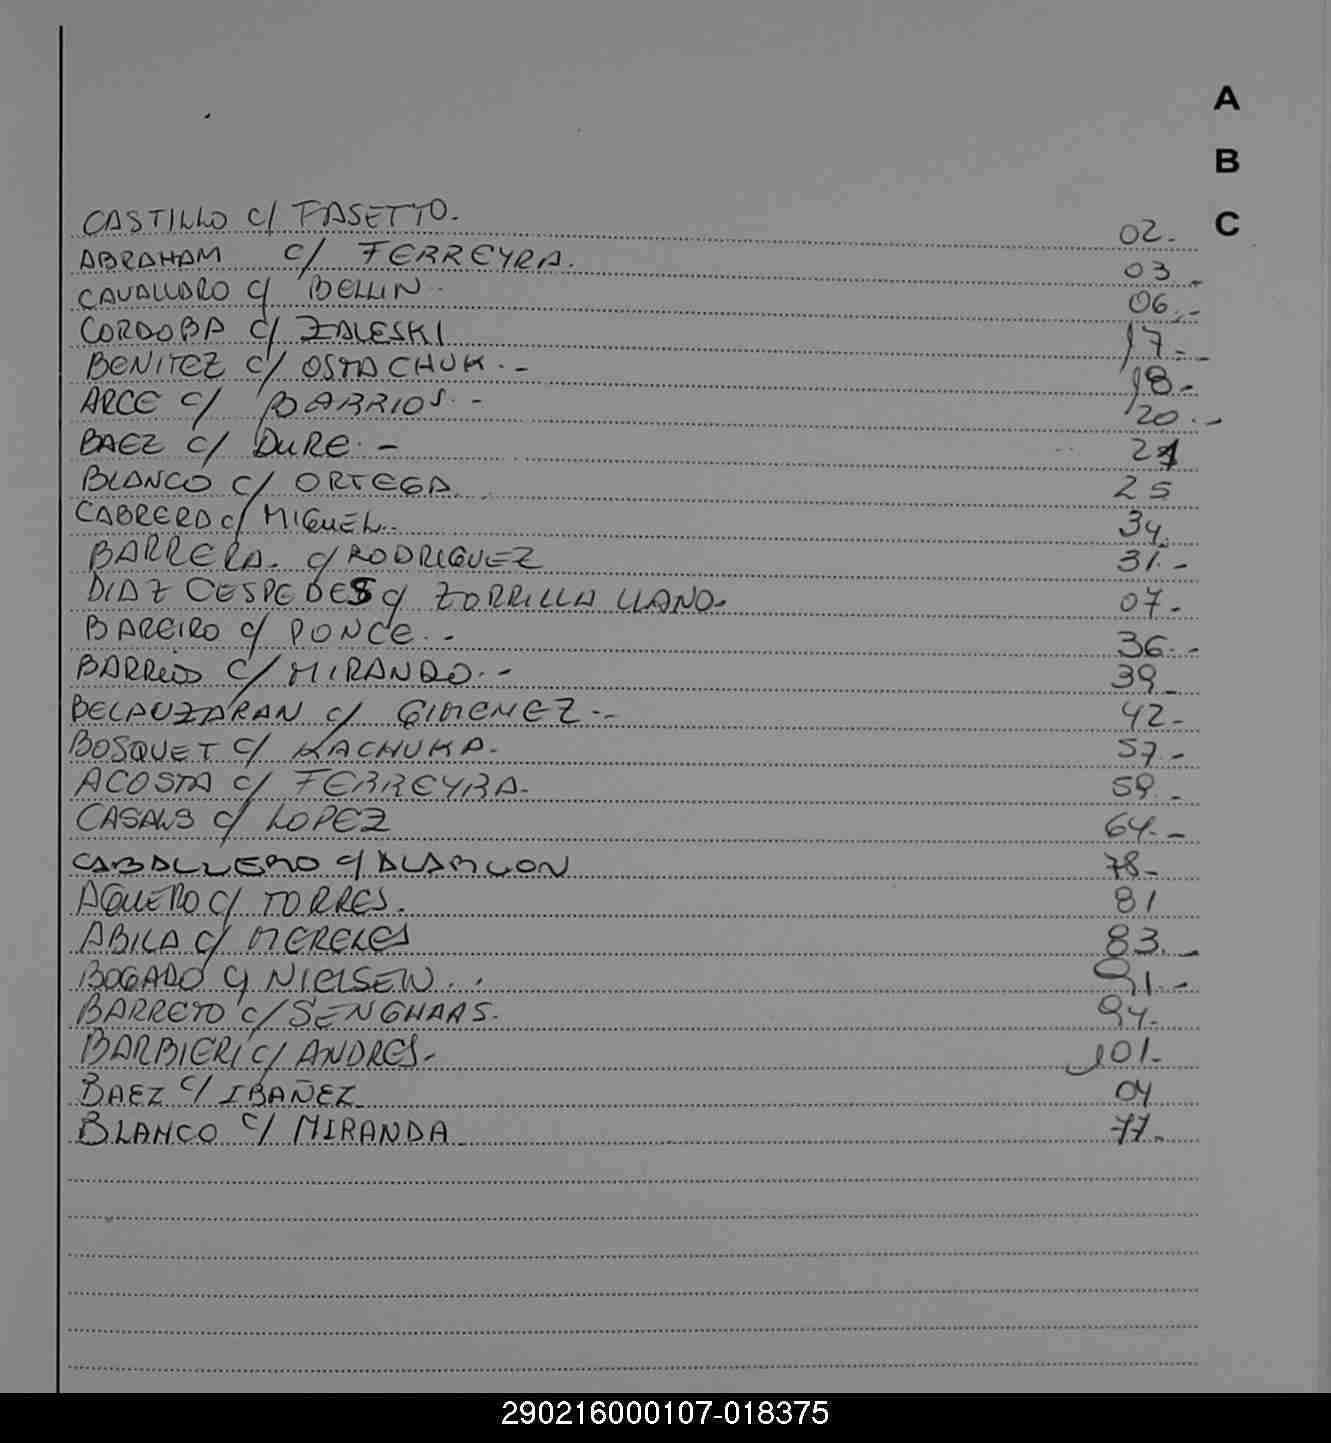 A
B
C
CASTILLO c/ FASETTO. 02.
ABRAHAM c/ FERREYRA. 03
CAVALLARO c/ BELLIN. 06.-
CORDOBA c/ ZALESKI 17.-
BENITEZ c/ OSTACHUK.- 18.-
ARCE c/ BARRIOS.- 20.-
BAEZ c/ DURE.- 21
BLANCO c/ ORTEGA 25
CABRERA c/ MIGUEL. 34.
BARRERA. c/ RODRIGUEZ 31.-
DIAZ CESPEDES c/ ZORRILLA LLANO. 07.-
BAREIRO c/ PONCE.- 36.-
BARRIOS c/ MIRANDO.- 39-
BELAUZARAN c/ GIMENEZ.- 42-
BOSQUET c/ KACHUKA. 57.-
ACOSTA c/ FERREYRA. 59.-
CASALS c/ LOPEZ 64.-
CABALLERO c/ ALARCON 78-
AGUERO c/ TORRES. 81
ABILA c/ MERELES 83.-
BOGADO c/ NIELSEN. 91.-
BARRETO c/ SENGHAAS. 94.
BARBIERI c/ ANDRES. 101.
BAEZ c/ IBAÑEZ 04
BLANCO c/ MIRANDA 77.
290216000107-018375